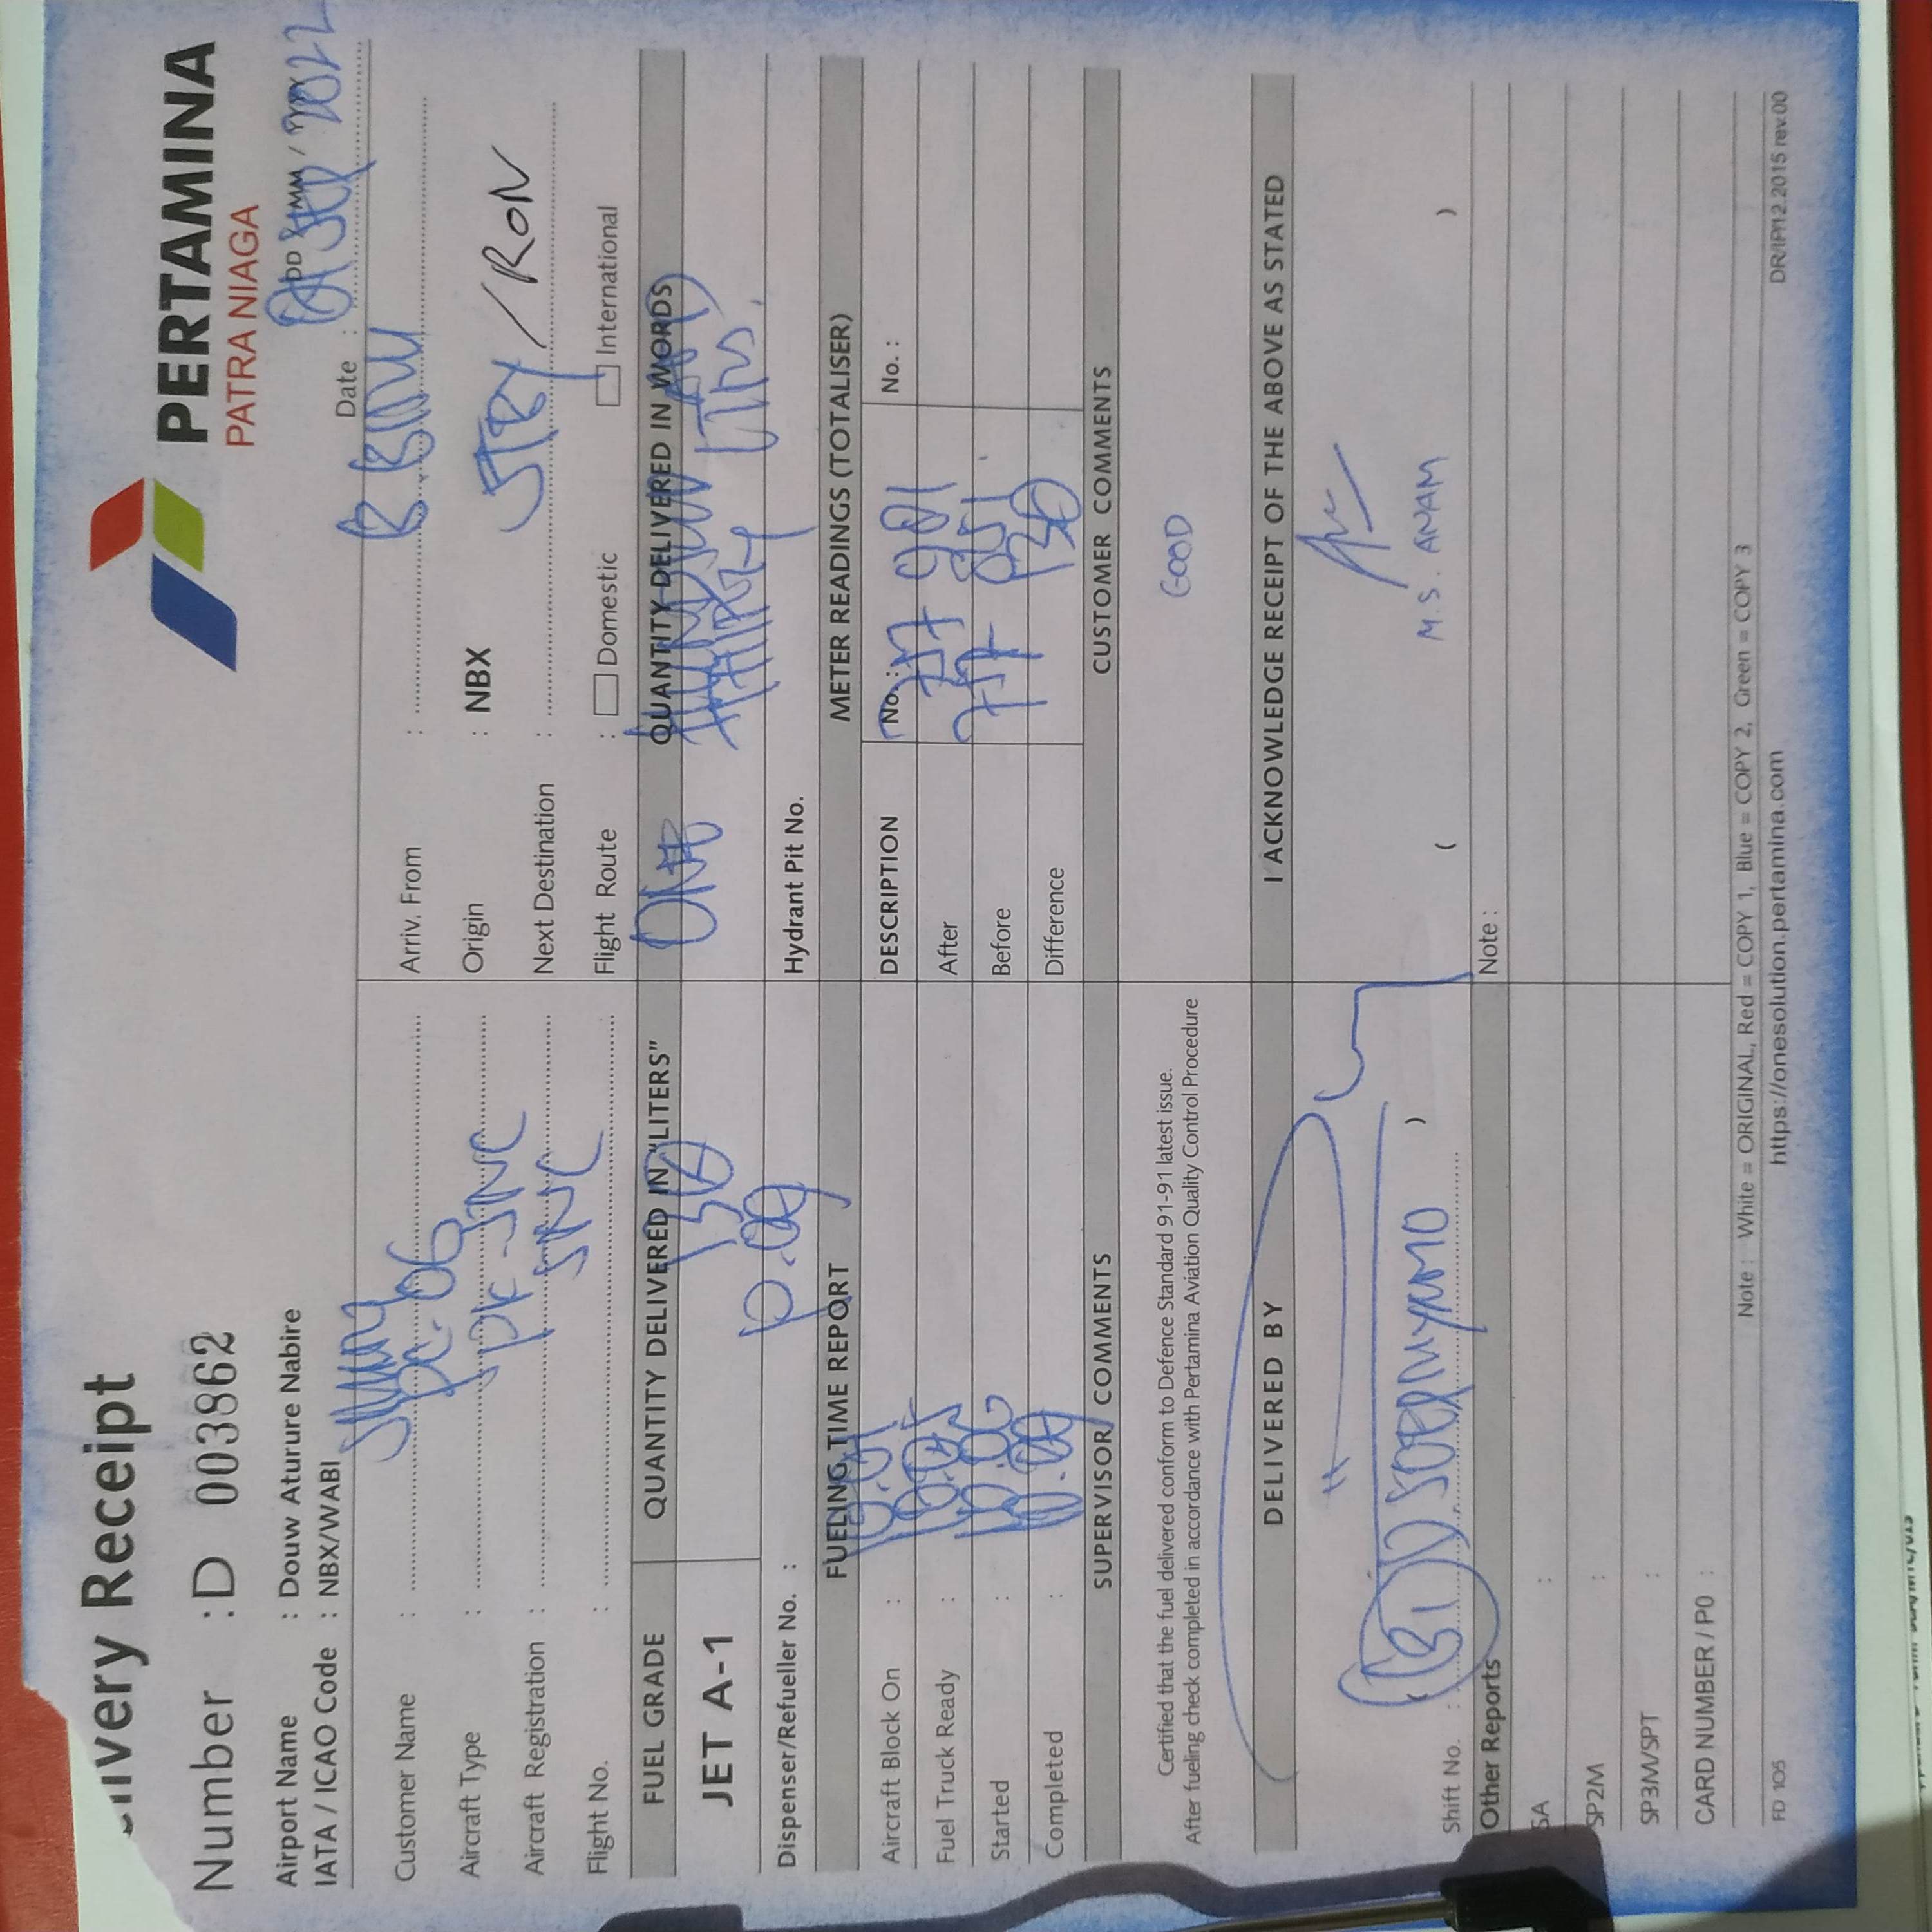 Delivery Receipt
PERTAMINA
PATRA NIAGA
Number : D 003862
Airport Name : Douw Aturure Nabire
IATA / ICAO Code : NBX/WABI
Date : DD / MMM / YYYY SEP 2022
Customer Name :
Arriv. From :
Aircraft Type : PC-06
Origin : NBX
Aircraft Registration : PK-SNC
Next Destination : STBY / RON
Flight No. : SNC
Flight Route : Domestic International
FUEL GRADE
QUANTITY DELIVERED IN "LITERS"
QUANTITY DELIVERED IN WORDS
JET A-1
130
ONE HUNDRED AND
THIRTY LTRS.
Dispenser/Refueller No. :
Hydrant Pit No.
FUELING TIME REPORT
METER READINGS (TOTALISER)
DESCRIPTION No. : No. :
Aircraft Block On :
Fuel Truck Ready :
After 777 981
Started :
Before 777 851
Completed :
Difference 130
SUPERVISOR COMMENTS
CUSTOMER COMMENTS
Certified that the fuel delivered conform to Defence Standard 91-91 latest issue.
After fueling check completed in accordance with Pertamina Aviation Quality Control Procedure
GOOD
DELIVERED BY
I ACKNOWLEDGE RECEIPT OF THE ABOVE AS STATED
M.S. ANAM
( )
Shift No. : ( )
Other Reports
Note :
SA :
SP2M :
SP3M/SPT :
CARD NUMBER / PO :
Note : White = ORIGINAL, Red = COPY 1, Blue = COPY 2, Green = COPY 3
FD 105
https://onesolution.pertamina.com
DR/IP/12.2015 rev.00